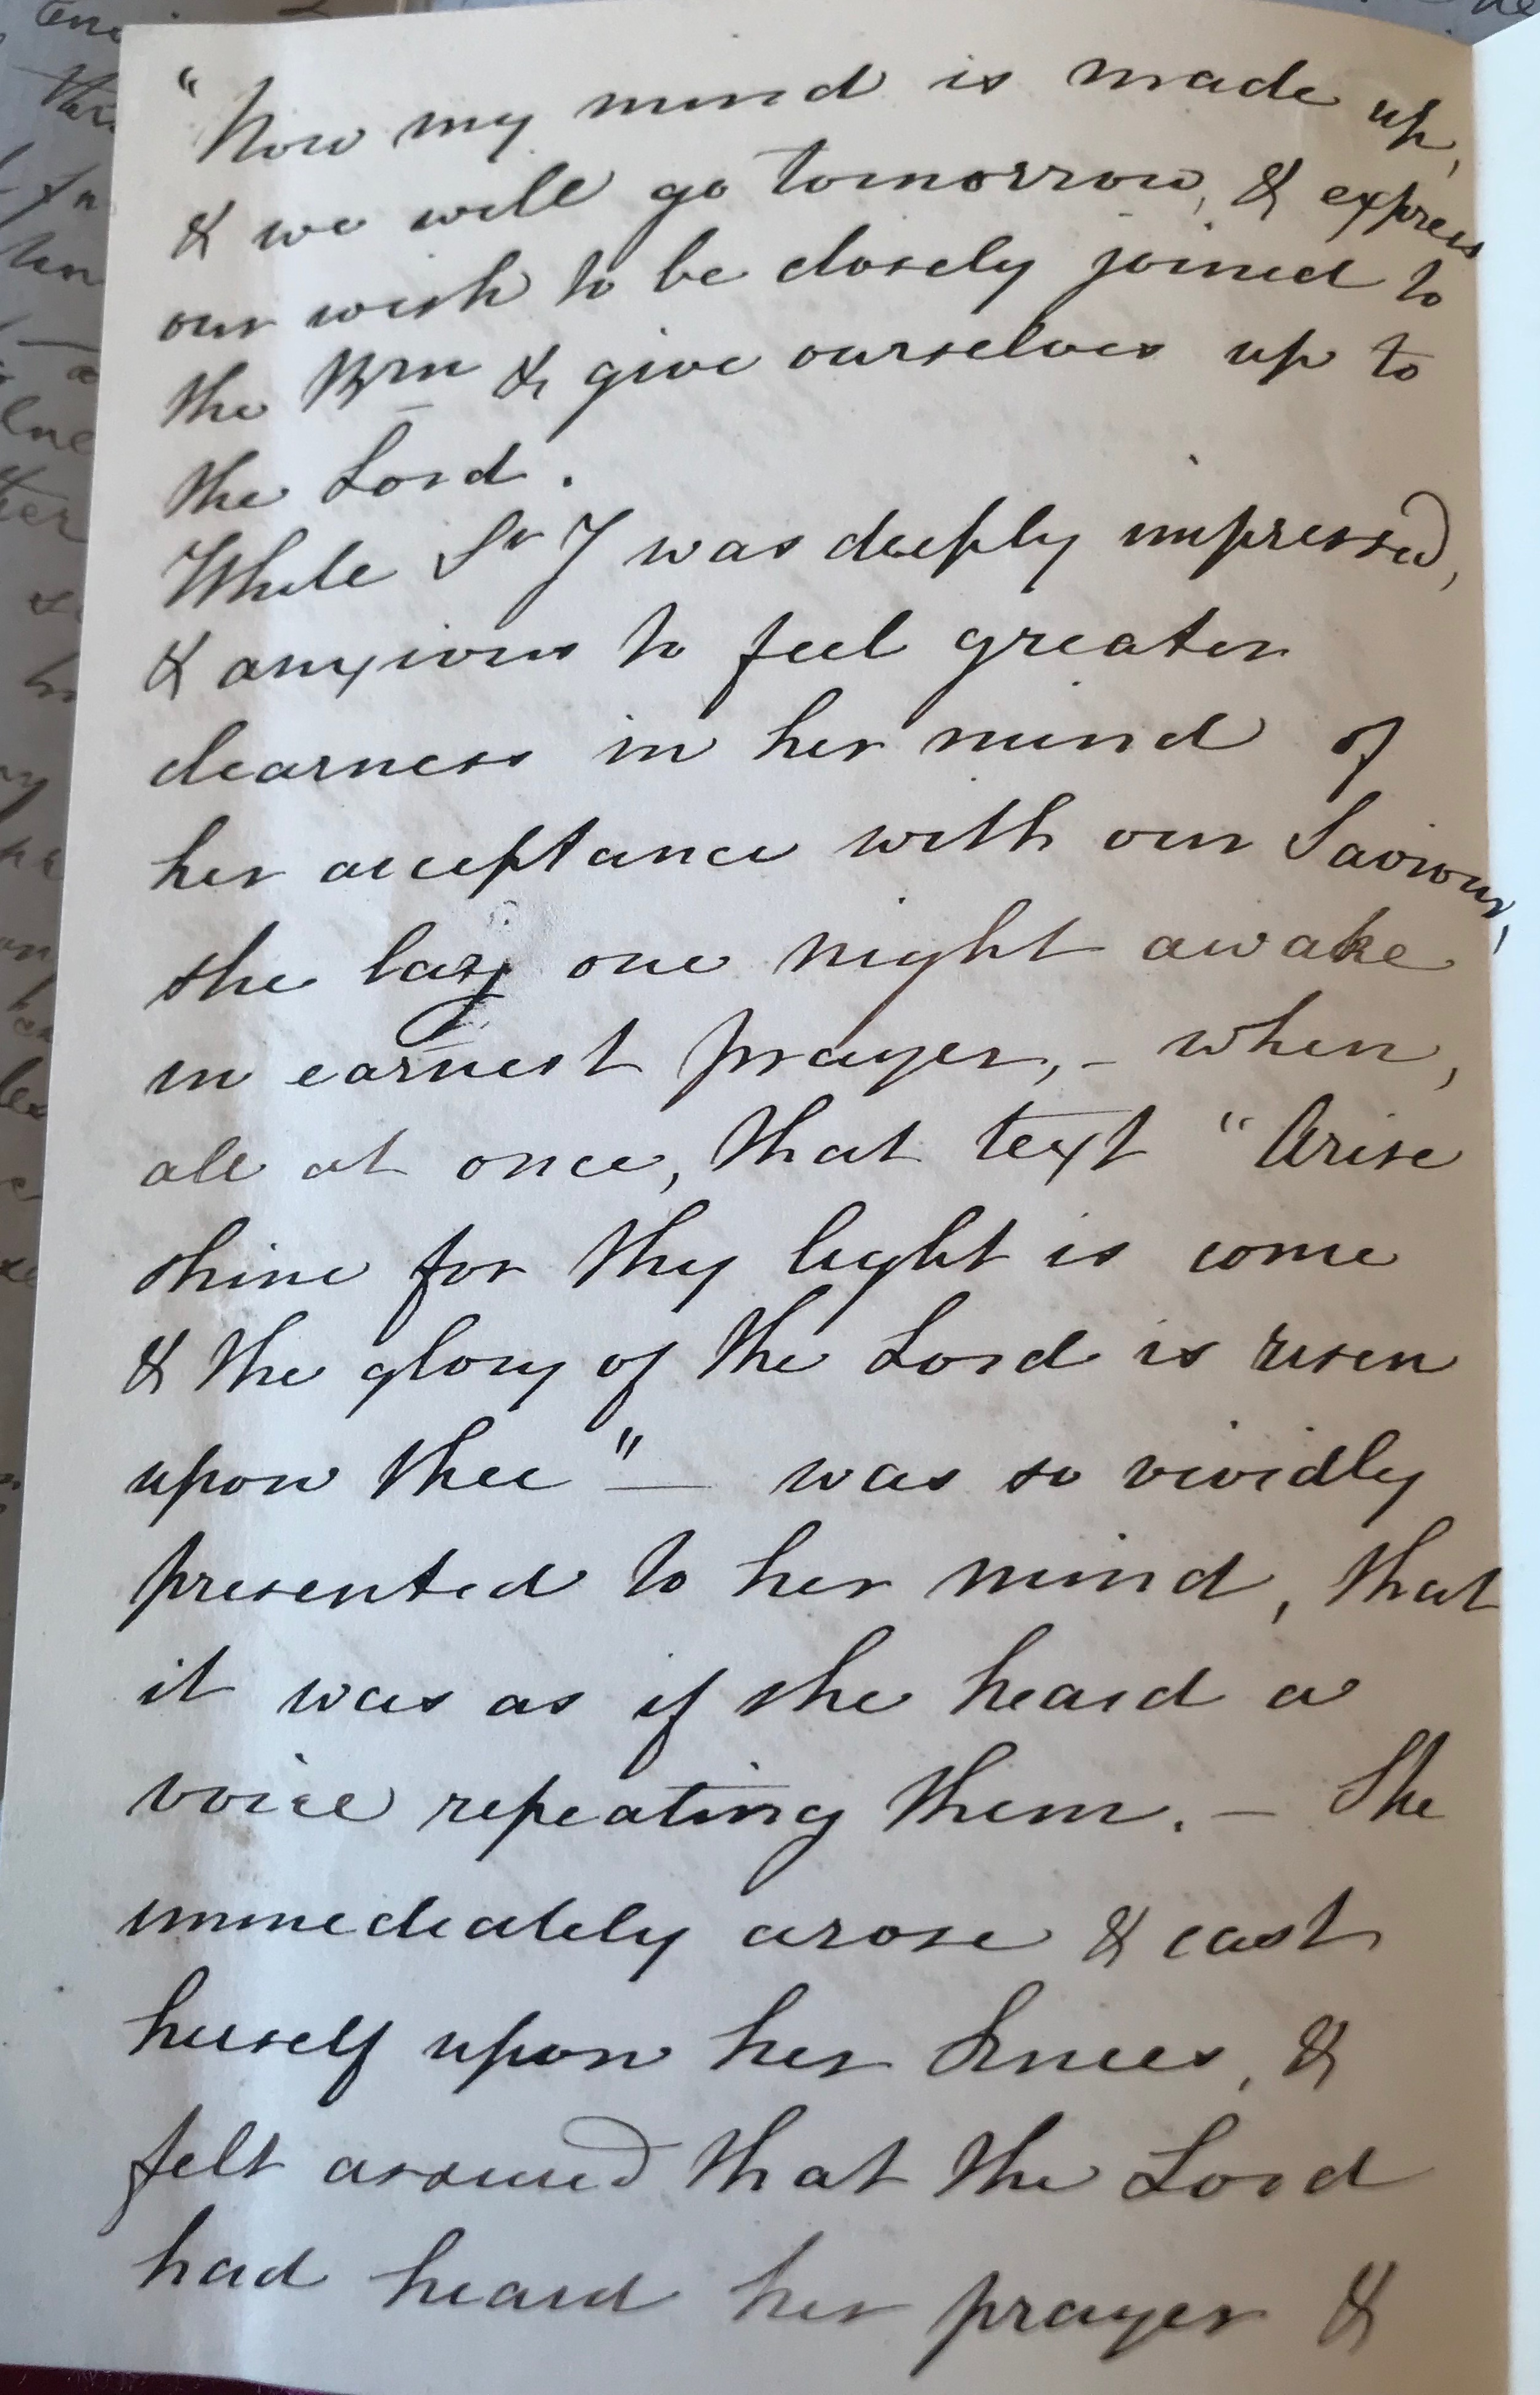 "Now my mind is made up,
& we will go tomorrow, & express
our wish to be closely joined to
the Brn & give ourselves up to
the Lord.
While Sr J was deeply impressed,
& anxious to feel greater
clearness in her mind of
her acceptance with our Saviour,
she lay one night awake
in earnest prayer, - when,
all at once, that text "Arise
shine for thy light is come
& the glory of the Lord is risen
upon thee" — was so vividly
presented to her mind, that
it was as if she heard a
voice repeating them. — She
immediately arose & cast
herself upon her knees, &
felt assured that the Lord
had heard her prayer &